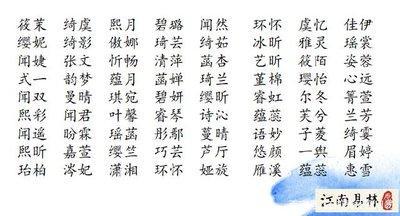 筱茉 绮虞 熙月 碧璐 闻然 环怀 虞忆 佳伊
缨妮 绮影 傲娜 琦芸 绮茹 冰昕 雅灵 瑶裳
闻婕 张文 忻畅 清萍 菡杏 艺昕 筱陌 姿蓉
式一 韵梦 蕴月 菡婵 琦兰 董棉 璎怡 心远
闻双 曼晴 琪宛 碧妍 缨昕 睿虹 尔冬 箐萱
熙彩 闻君 叶馨 睿琴 诗沁 蕊蕊 芙兮 兰芳
闻遥 盼霖 瑶菡 彤鄢 蔓晴 语妙 子菱 绮雯
熙昕 嘉萱 缨竺 巧芸 芦厅 悠颜 一舆 眉婷
珆柏 涔妃 潇湘 环怀 娅旋 雁溪 蕴蕊 惠雪
江南易林